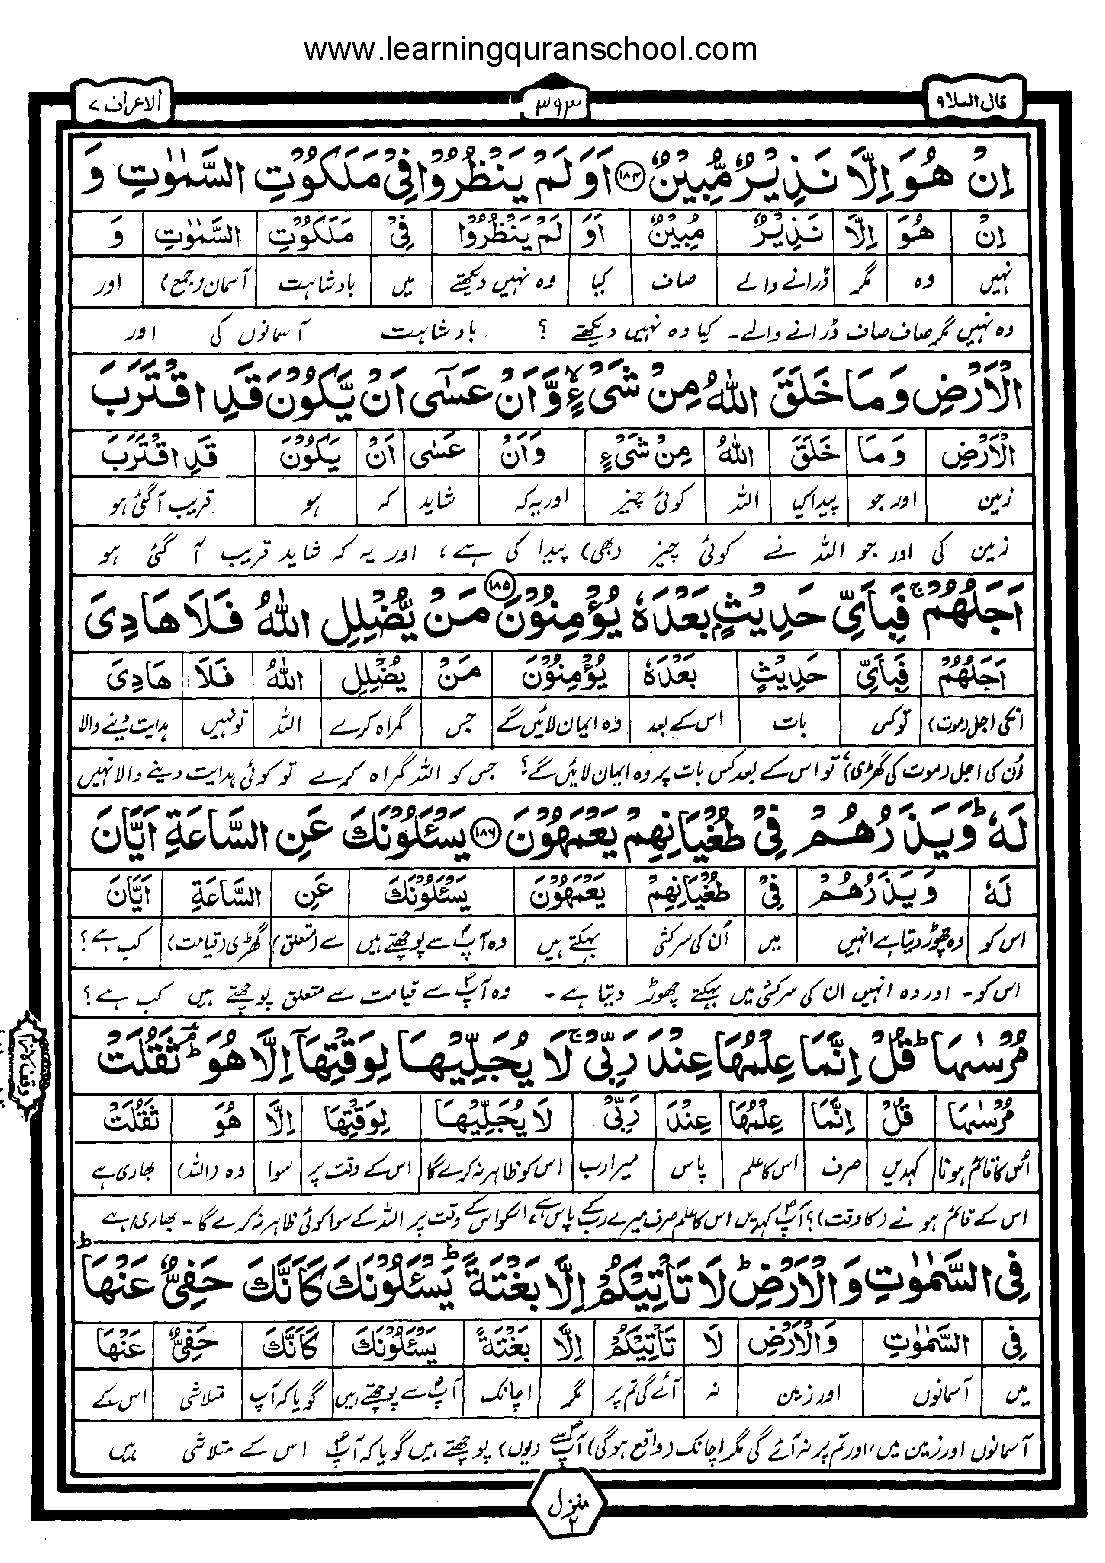 www.learningquranschool.com
قال الملاو ۳۹۳ الاعراف ۷
اِنْ هُوَ اِلَّا نَذِيْرٌ مُّبِيْنٌ ۱۸۴ اَوَلَمْ يَنْظُرُوْا فِيْ مَلَكُوْتِ السَّمٰوٰتِ وَ
اِنْ هُوَ اِلَّا نَذِيْرٌ مُبِيْنٌ اَوَ لَمْ يَنْظُرُوْا فِيْ مَلَكُوْتِ السَّمٰوٰتِ وَ
نہیں وہ مگر ڈرانے والے صاف کیا وہ نہیں دیکھتے میں بادشاہت آسمان (جمع) اور
وہ نہیں مگر صاف صاف ڈرانے والے۔ کیا وہ نہیں دیکھتے ؟ بادشاہت آسمانوں کی اور
الْاَرْضِ وَمَا خَلَقَ اللّٰهُ مِنْ شَيْءٍ وَّاَنْ عَسٰٓى اَنْ يَّكُوْنَ قَدِ اقْتَرَبَ
الْاَرْضِ وَمَا خَلَقَ اللّٰهُ مِنْ شَيْءٍ وَاَنْ عَسٰى اَنْ يَكُوْنَ قَدِ اقْتَرَبَ
زمین اور جو پیدا کیا اللہ کوئی چیز اور یہ کہ شاید کہ ہو قریب آگئی ہو
زمین کی اور جو اللہ نے کوئی چیز (بھی) پیدا کی ہے، اور یہ کہ شاید قریب آ گئی ہو
اَجَلُهُمْ ۚ فَبِاَيِّ حَدِيْثٍۭ بَعْدَهٗ يُؤْمِنُوْنَ ۱۸۵ مَنْ يُّضْلِلِ اللّٰهُ فَلَا هَادِيَ
اَجَلُهُمْ فَبِاَيِّ حَدِيْثٍ بَعْدَهٗ يُؤْمِنُوْنَ مَنْ يُضْلِلِ اللّٰهُ فَلَا هَادِيَ
انکی اجل (موت) تو کس بات اس کے بعد وہ ایمان لائیں گے جس گمراہ کرے اللہ تو نہیں ہدایت دینے والا
اُن کی اجل (موت کی گھڑی) تو اس کے بعد کس بات پر وہ ایمان لائیں گے؟ جس کو اللہ گمراہ کرے تو کوئی ہدایت دینے والا نہیں
لَهٗ ؕ وَيَذَرُهُمْ فِيْ طُغْيَانِهِمْ يَعْمَهُوْنَ ۱۸۶ يَسْـَٔلُوْنَكَ عَنِ السَّاعَةِ اَيَّانَ
لَهٗ وَيَذَرُهُمْ فِيْ طُغْيَانِهِمْ يَعْمَهُوْنَ يَسْـَٔلُوْنَكَ عَنِ السَّاعَةِ اَيَّانَ
اس کو وہ چھوڑ دیتا ہے انہیں میں اُن کی سرکشی بہکتے ہیں وہ آپؐ سے پوچھتے ہیں سے (متعلق) گھڑی (قیامت) کب ہے؟
اس کو۔ اور وہ انہیں ان کی سرکشی میں بہکتے چھوڑ دیتا ہے۔ وہ آپؐ سے قیامت سے متعلق پوچھتے ہیں کب ہے؟
مُرْسٰىهَا ؕ قُلْ اِنَّمَا عِلْمُهَا عِنْدَ رَبِّيْ ۚ لَا يُجَلِّيْهَا لِوَقْتِهَآ اِلَّا هُوَ ؕ ثَقُلَتْ
مُرْسٰىهَا قُلْ اِنَّمَا عِلْمُهَا عِنْدَ رَبِّيْ لَا يُجَلِّيْهَا لِوَقْتِهَا اِلَّا هُوَ ثَقُلَتْ
اُس کا قائم ہونا کہدیں صرف اس کا علم پاس میرا رب اس کو ظاہر نہ کرے گا اس کے وقت پر سوا وہ (اللہ) بھاری ہے
اس کے قائم ہونے (کا وقت)؟ آپؐ کہدیں اس کا علم صرف میرے رب کے پاس ہے، اسکو اس کے وقت پر اللہ کے سوا کوئی ظاہر نہ کرے گا۔ بھاری ہے
فِي السَّمٰوٰتِ وَالْاَرْضِ ؕ لَا تَاْتِيْكُمْ اِلَّا بَغْتَةً ؕ يَسْـَٔلُوْنَكَ كَاَنَّكَ حَفِيٌّ عَنْهَا ؕ
فِي السَّمٰوٰتِ وَالْاَرْضِ لَا تَاْتِيْكُمْ اِلَّا بَغْتَةً يَسْـَٔلُوْنَكَ كَاَنَّكَ حَفِيٌّ عَنْهَا
میں آسمانوں اور زمین نہ آئے گی تم پر مگر اچانک آپؐ سے پوچھتے ہیں گویا کہ آپ متلاشی اس کے
آسمانوں اور زمین میں، اور تم پر نہ آئے گی مگر اچانک (واقع ہو گی) آپؐ سے (یوں) پوچھتے ہیں گویا کہ آپؐ اس کے متلاشی ہیں
منزل ۲